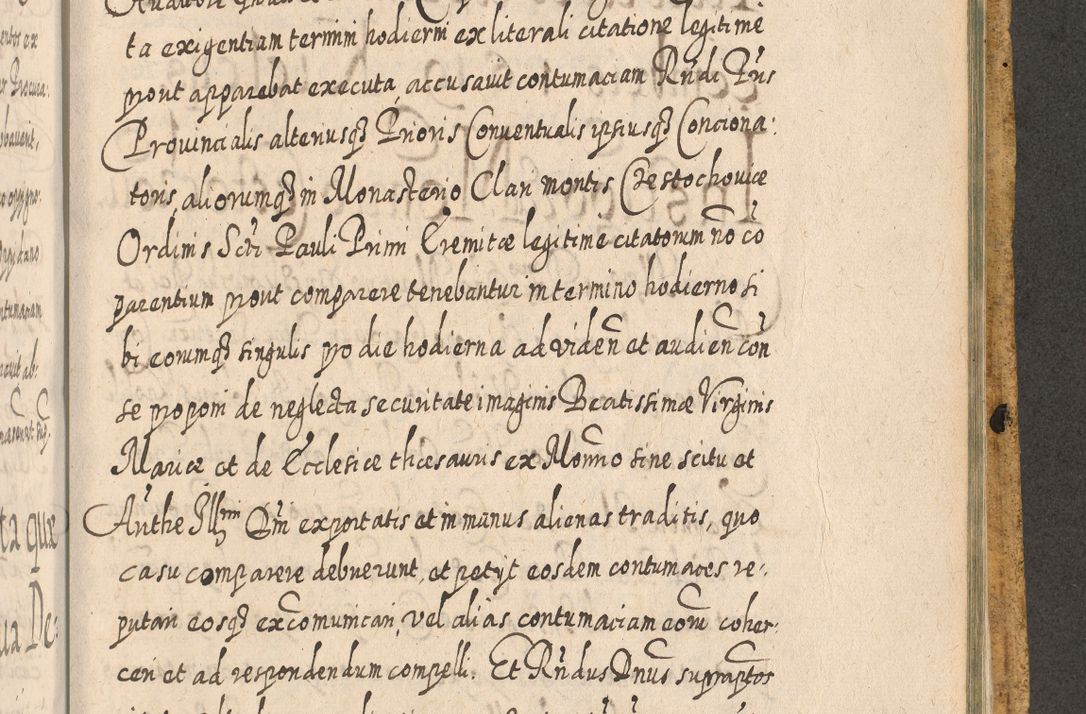 ta exigentiam termini hodierni ex literali citatione legitime
prout apparebat executa, accusavit contumaciam Rndi Pris
Provincialis alteriusq3 Prioris Conventualis ipsiusq3 Conciona:
toris, aliorumq3 in Monasterio Clari montis Czestochoviæ
Ordinis Scti Pauli Primi Eremitæ legitime citatorum nō co
parentium prout comparere tenebantur in termino hodierno si
bi eorumq3 singulis pro die hodierna ad videñ et audieñ con
se proponi de neglecta securitate imaginis Beatissimæ Virginis
Mariæ et de Ecclesiæ thesauris ex Monrio sine scitu et
Authe Illmi Dni exportatis et in manus alienas traditis, quo
casu comparere debuerunt, et petyt eosdem contumaces re-
putari eosq3 excomunicari, vel aliàs contumaciam eorū coher
ceri et ad respondendum compelli. Et Rndus Dnus supraptos